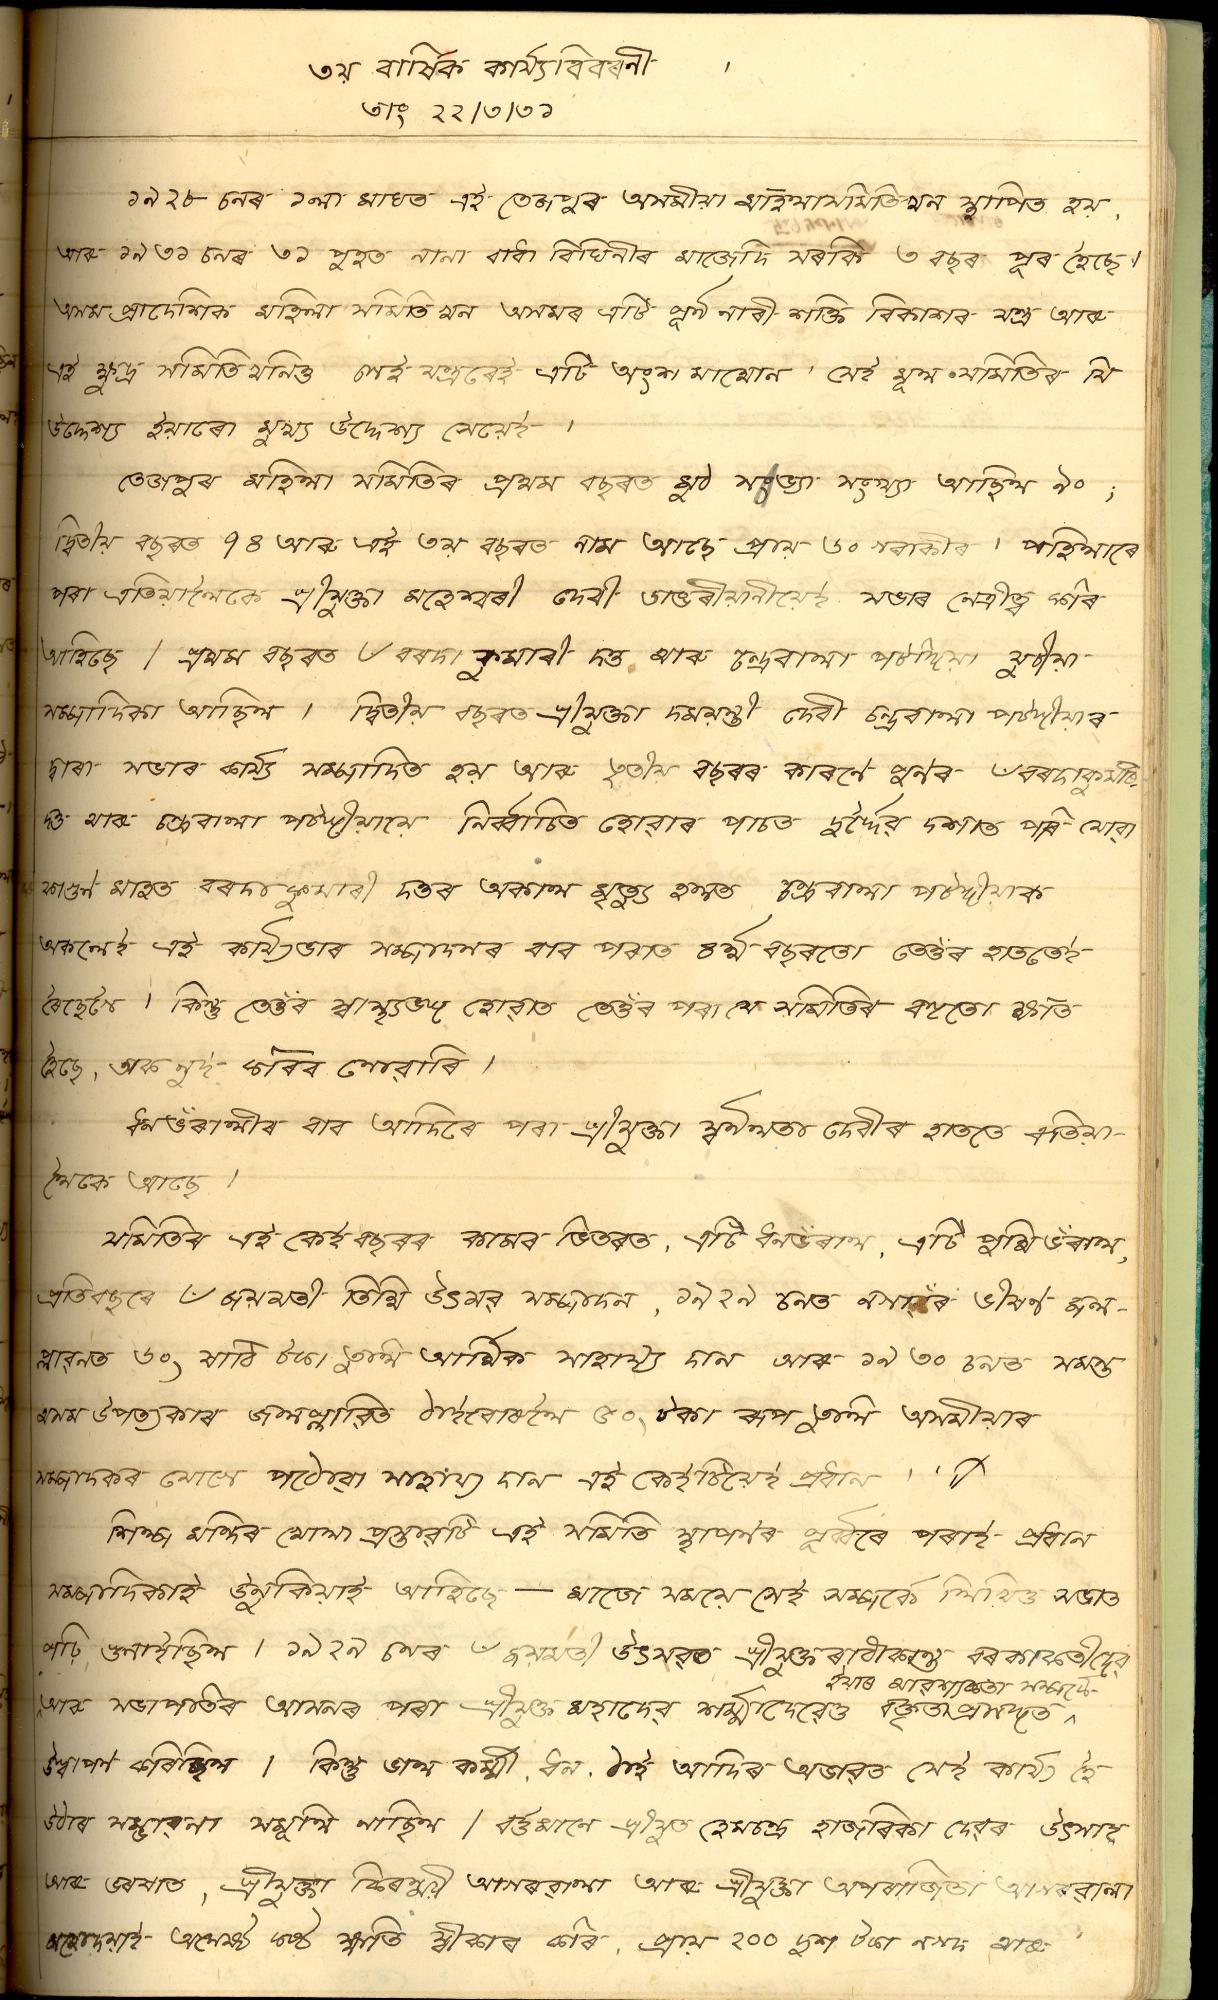 ৩য় বাৰ্ষিক কাৰ্য্যবিবৰনী ।
তাং ২২/৩/৩১
১৯২৮ চনৰ ১লা মাঘত এই তেজপুৰ অসমীয়া মহিলা সমিতি খন স্থাপিত হয়,
আৰু ১৯৩১ চনৰ ৩১ পুহত নানা বাধা বিঘিনীৰ মাজেদি সৰকি ৩ বছৰ পূৰ হৈছে।
অসম প্ৰাদেশিক মহিলা সমিতি খন অসমৰ এটি পূৰ্ন নাৰী শক্তি বিকাশৰ যন্ত্ৰ আৰু
এই ক্ষুদ্ৰ সমিতি খনিও সেই যন্ত্ৰৰেই এটি অংশ মাথোন । সেই মূল সমিতিৰ যি
উদ্দেশ্য ইয়াৰো মুখ্য উদ্দেশ্য সেয়েই ।
তেজপুৰ মহিলা সমিতিৰ প্ৰথম বছৰত মুঠ সভ্যা সংখ্যা আছিল ৯০ ;
দ্বিতীয় বছৰত ৭৪ আৰু এই ৩য় বছৰত নাম আছে প্ৰায় ৬০ গৰাকীৰ । পহিলাৰে
পৰা এতিয়ালৈকে শ্ৰীযুক্তা মহেশ্বৰী দেবী ডাক্তৰীয়ানীয়েই সভাৰ নেত্ৰীত্ব কৰি
আহিছে / প্ৰথম বছৰত ৺ বৰদা কুমাৰী দত্ত আৰু চন্দ্ৰবালা পটঙ্গিয়া যুটীয়া
সম্পাদিকা আছিল । দ্বিতীয় বছৰত শ্ৰীযুক্তা দময়ন্তী দেবী চন্দ্ৰবালা পটঙ্গীয়াৰ
দ্বাৰা সভাৰ কাৰ্য্য সম্পাদিত হয় আৰু তৃতীয় বছৰৰ কাৰণে পুনৰ ৺বৰদাকুমাৰী
দত্ত আৰু চন্দ্ৰবালা পটঙ্গীয়ায়ে নিৰ্ব্বাচিত হোৱাৰ পাচত দুৰ্দ্দৈৱ দশাত পৰি যোৱা
ফাগুন মাহত বৰদা কুমাৰী দত্তৰ অকাল মৃত্যু হলত চন্দ্ৰবালা পটঙ্গীয়াক
অকলেই এই কাৰ্য্যভাৰ সম্পাদনৰ বাব পৰাত ৪ৰ্থ বছৰতো তেওঁৰ হাততেই
ৰৈছেগৈ । কিন্তু তেওঁৰ স্বাস্থ্যভঙ্গ হোৱাত তেওঁৰ পৰা যে সমিতিৰ বহুতো ক্ষতি
হৈছে, তাক নুই কৰিব নোৱাৰি ।
ধনভঁৰালীৰ বাব আদিৰে পৰা শ্ৰীযুক্তা স্বৰ্নলতা দেবীৰ হাততে এতিয়া-
লৈকে আছে ।
সমিতিৰ এই কেইবছৰৰ কামৰ ভিতৰত, এটি ধনভঁৰাল, এটি পুথিভঁৰাল,
প্ৰতিবছৰে ৺ জয়মতী তিথি উৎসৱ সম্পাদন, ১৯২৯ চনত নগাৱঁৰ ভীষণ জল-
প্লাৱনত ৬০৲ ষাঠি টকা তুলি আৰ্থিক সাহায্য দান আৰু ১৯৩০ চনত সমস্ত
অসম উপত্যকাৰ জলপ্লাৱিত ঠাইবোৰলৈ ৫০৲ টকা ৰূপ তুলি অসমীয়াৰ
সম্পাদকৰ যোগে পঠোৱা সাহায্য দান এই কেইটিয়েই প্ৰধান ।
শিল্প মন্দিৰ খোলা প্ৰস্তাৱটি এই সমিতি স্থাপনৰ পূৰ্ব্বৰে পৰাই প্ৰধান
সম্পাদিকাই উনুকিয়াই আহিছে — মাজে সময়ে সেই সম্পৰ্কে লিখিত সভাত
পঢ়ি শুনাইছিল । ১৯২৯ চনৰ ৺ জয়মতী উৎসৱত শ্ৰীযুক্ত ৰাধাকান্ত বৰকাকতীদেৱ
ইয়াৰ আৱশ্যকতা সম্পৰ্কে
আৰু সভাপতিৰ আসনৰ পৰা শ্ৰীযুক্ত মহাদেৱ শৰ্ম্মাদেৱেও বক্তৃতা প্ৰসঙ্গত ^
উত্থাপন কৰিছিল । কিন্তু ভাল কৰ্ম্মী, ধন, ঠাই আদিৰ অভাৱত সেই কাৰ্য্য হৈ
উঠাৰ সম্ভাৱনা সমূলি নাছিল / বৰ্ত্তমানে শ্ৰীযুত হেমচন্দ্ৰ হাজৰিকা দেৱৰ উৎসাহ
আৰু ভৰষাত, শ্ৰীযুক্তা কিৰন্ময়ী আগৰৱালা আৰু শ্ৰীযুক্তা অপৰাজিতা আগৰৱালা
মহোদয়াই অশেষ কষ্ট ক্ষতি স্বীকাৰ কৰি, প্ৰায় ২০০ দুশ টকা নগদ আৰু